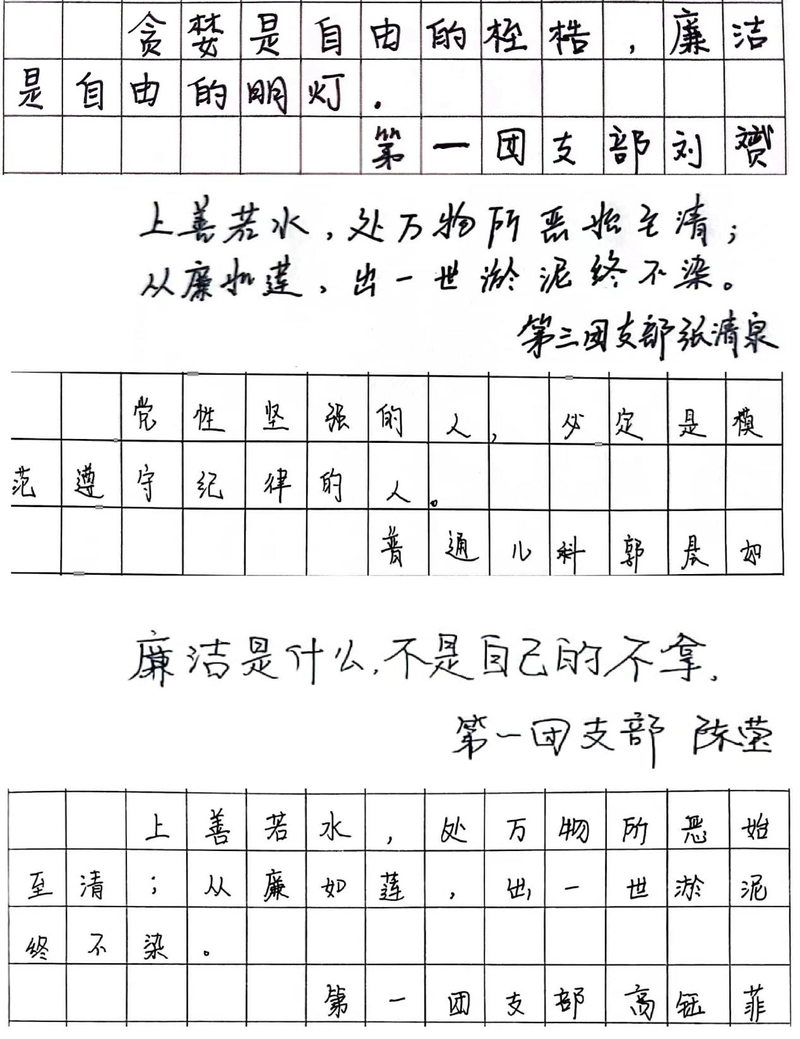 贪婪是自由的桎梏，廉洁
是自由的明灯.
第一团支部刘赟
上善若水，处万物所恶始至清；
从廉如莲，出一世淤泥终不染。
第三团支部张清泉
党性坚强的人，必定是模
范遵守纪律的人。
普通儿科郭晨如
廉洁是什么,不是自己的不拿.
第一团支部 陈莹
上善若水，处万物所恶始
至清；从廉如莲，出一世淤泥
终不染。
第一团支部高钰菲